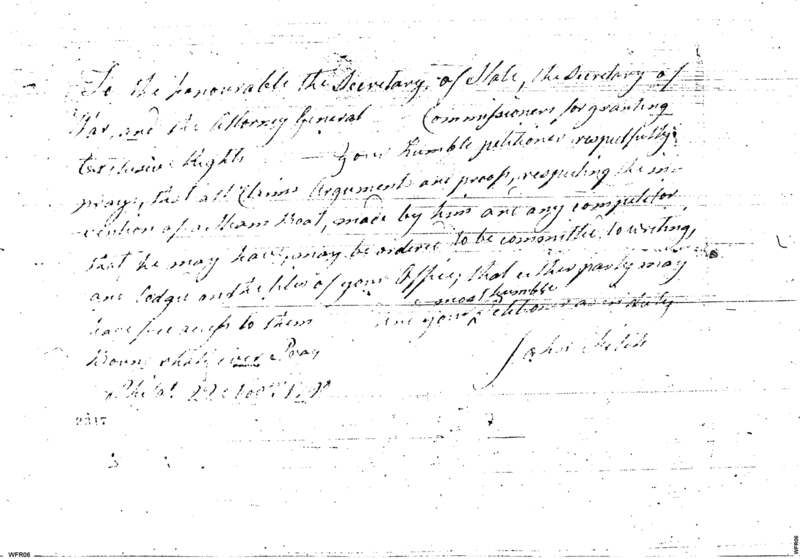 To the honourable the Secretary of State, the Secretary of
War, and the Attorney General Commissioners for granting
Exclusive Rights — Your humble petitioner respectfully
prays, that all Claims Arguments and proofs, respecting the in-
vention of a Steam Boat, made by him and any competitor
that he may have, may be ordered to be committed to writing,
and lodged on the files of your Office, that either party may
most humble
have free access to them And your petitioner as in duty
bound shall ever Pray
John Fitch
Phila. 22d Novr.
2317
WFR06
WFR06